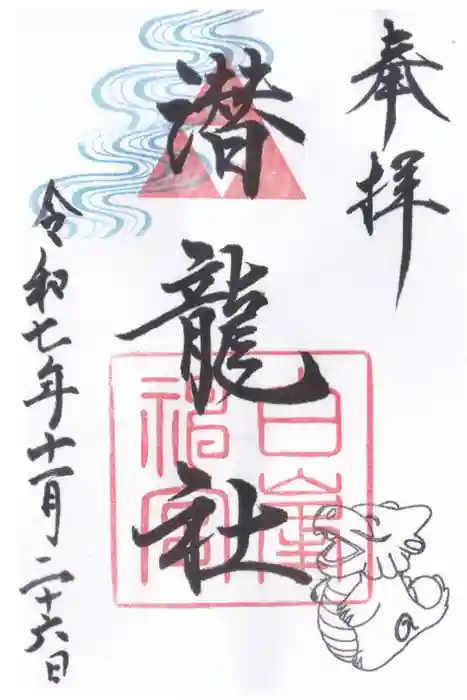 奉拝
潜龍社
令和七年十一月二十六日